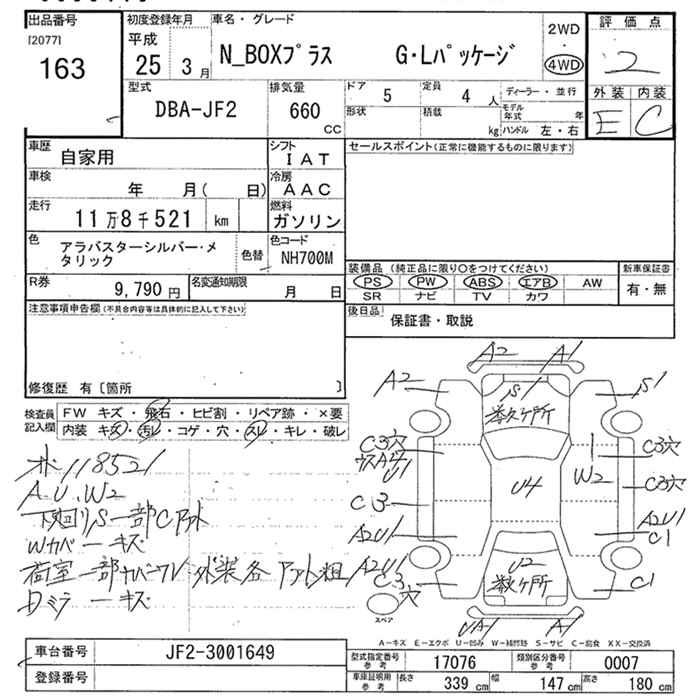 出品番号 初度登録年月 車名・グレード 評価点
[2077] 平成 2WD
163 25 3月 N_BOXプラス G・Lパッケージ ・ 2
4WD
型式 排気量 ドア 5 定員 4人 ディーラー・並行 外装 内装
DBA-JF2 660 CC 形状 積載 kg モデル年式 年 E C
ハンドル 左・右
車歴 自家用 シフト IAT セールスポイント(正常に機能するものに限ります)
車検 年 月( 日) 冷房 AAC
走行 11万8千521 km 燃料 ガソリン
色 アラバスターシルバー・メタリック 色替 色コード NH700M
装備品 (純正品に限り○をつけてください) 新車保証書
PS PW ABS エアB AW 有・無
SR ナビ TV カワ
R券 9,790円 名変通知期限 月 日
後日品 保証書・取説
注意事項申告欄(不具合内容等は具体的に記入して下さい)
修復歴 有〔箇所 〕
検査員記入欄 FW キズ・飛石・ヒビ割・リペア跡・×要
内装 キズ・汚レ・コゲ・穴・スレ・キレ・破レ
118521
A.U.W2
下廻りS一部Cアト
Wカバーキズ
荷室一部カバーワレ 外装各アト粗
Dミラーキズ
A2 A1
A2 S1 S1
数ヶ所
C3穴 C3穴
U1 W2
C3 U4 C3穴
A2U1 A2U1
C1
A2U1 U2
C3穴 数ヶ所 C1
スペア
UA1 A1
A-キズ E-エクボ U-凹み W-補修跡 S-サビ C-腐食 XX-交換済
車台番号 JF2-3001649 型式指定番号 参考 17076 類別区分番号 参考 0007
登録番号 車庫証明用 参考 長さ 339 cm 幅 147 cm 高さ 180 cm